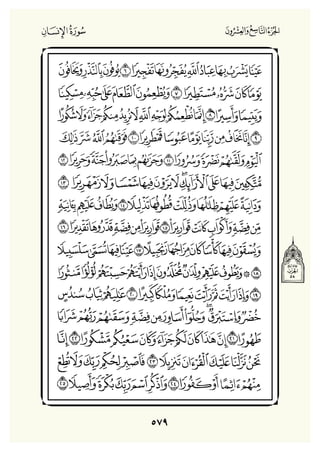 الجزء التاسع والعشرون
سورة الإنسان
عَيْنًا يَشْرَبُ بِهَا عِبَادُ اللَّهِ يُفَجِّرُونَهَا تَفْجِيرًا ٦ يُوفُونَ بِالنَّذْرِ وَيَخَافُونَ
يَوْمًا كَانَ شَرُّهُ مُسْتَطِيرًا ٧ وَيُطْعِمُونَ الطَّعَامَ عَلَى حُبِّهِ مِسْكِينًا
وَيَتِيمًا وَأَسِيرًا ٨ إِنَّمَا نُطْعِمُكُمْ لِوَجْهِ اللَّهِ لَا نُرِيدُ مِنكُمْ جَزَاءً وَلَا شُكُورًا
٩ إِنَّا نَخَافُ مِن رَّبِّنَا يَوْمًا عَبُوسًا قَمْطَرِيرًا ١٠ فَوَقَاهُمُ اللَّهُ شَرَّ ذَلِكَ
الْيَوْمِ وَلَقَّاهُمْ نَضْرَةً وَسُرُورًا ١١ وَجَزَاهُم بِمَا صَبَرُوا جَنَّةً وَحَرِيرًا ١٢
مُّتَّكِئِينَ فِيهَا عَلَى الْأَرَائِكِ لَا يَرَوْنَ فِيهَا شَمْسًا وَلَا زَمْهَرِيرًا ١٣
وَدَانِيَةً عَلَيْهِمْ ظِلَالُهَا وَذُلِّلَتْ قُطُوفُهَا تَذْلِيلًا ١٤ وَيُطَافُ عَلَيْهِم بِآنِيَةٍ
مِّن فِضَّةٍ وَأَكْوَابٍ كَانَتْ قَوَارِيرَا ١٥ قَوَارِيرَ مِن فِضَّةٍ قَدَّرُوهَا تَقْدِيرًا ١٦
وَيُسْقَوْنَ فِيهَا كَأْسًا كَانَ مِزَاجُهَا زَنجَبِيلًا ١٧ عَيْنًا فِيهَا تُسَمَّى سَلْسَبِيلًا
١٨ ۞ وَيَطُوفُ عَلَيْهِمْ وِلْدَانٌ مُّخَلَّدُونَ إِذَا رَأَيْتَهُمْ حَسِبْتَهُمْ لُؤْلُؤًا مَّنثُورًا
١٩ وَإِذَا رَأَيْتَ ثَمَّ رَأَيْتَ نَعِيمًا وَمُلْكًا كَبِيرًا ٢٠ عَالِيَهُمْ ثِيَابُ سُندُسٍ
خُضْرٌ وَإِسْتَبْرَقٌ وَحُلُّوا أَسَاوِرَ مِن فِضَّةٍ وَسَقَاهُمْ رَبُّهُمْ شَرَابًا
طَهُورًا ٢١ إِنَّ هَذَا كَانَ لَكُمْ جَزَاءً وَكَانَ سَعْيُكُم مَّشْكُورًا ٢٢ إِنَّا
نَحْنُ نَزَّلْنَا عَلَيْكَ الْقُرْآنَ تَنزِيلًا ٢٣ فَاصْبِرْ لِحُكْمِ رَبِّكَ وَلَا تُطِعْ
مِنْهُمْ آثِمًا أَوْ كَفُورًا ٢٤ وَاذْكُرِ اسْمَ رَبِّكَ بُكْرَةً وَأَصِيلًا ٢٥
٥٧٩